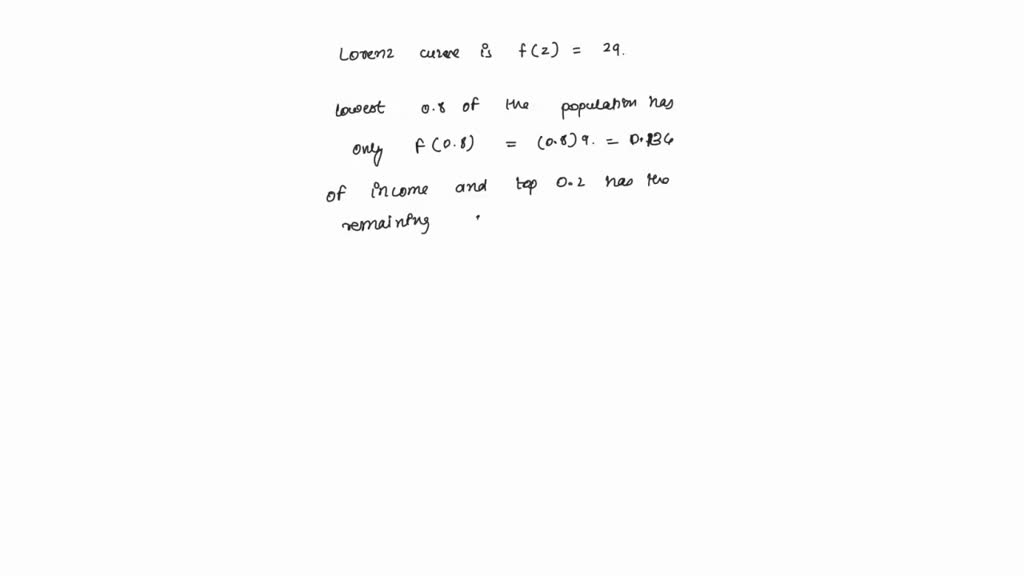 Lorenz curve is f(z) = z9.
lowest 0.8 of the population has
only f(0.8) = (0.8)9. = 0.134
of income and top 0.2 has
remaining .